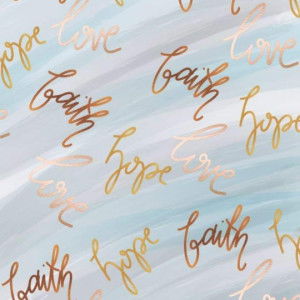 hope love
love
faith faith
hope
hope love
love
faith
hope hope
faith
love